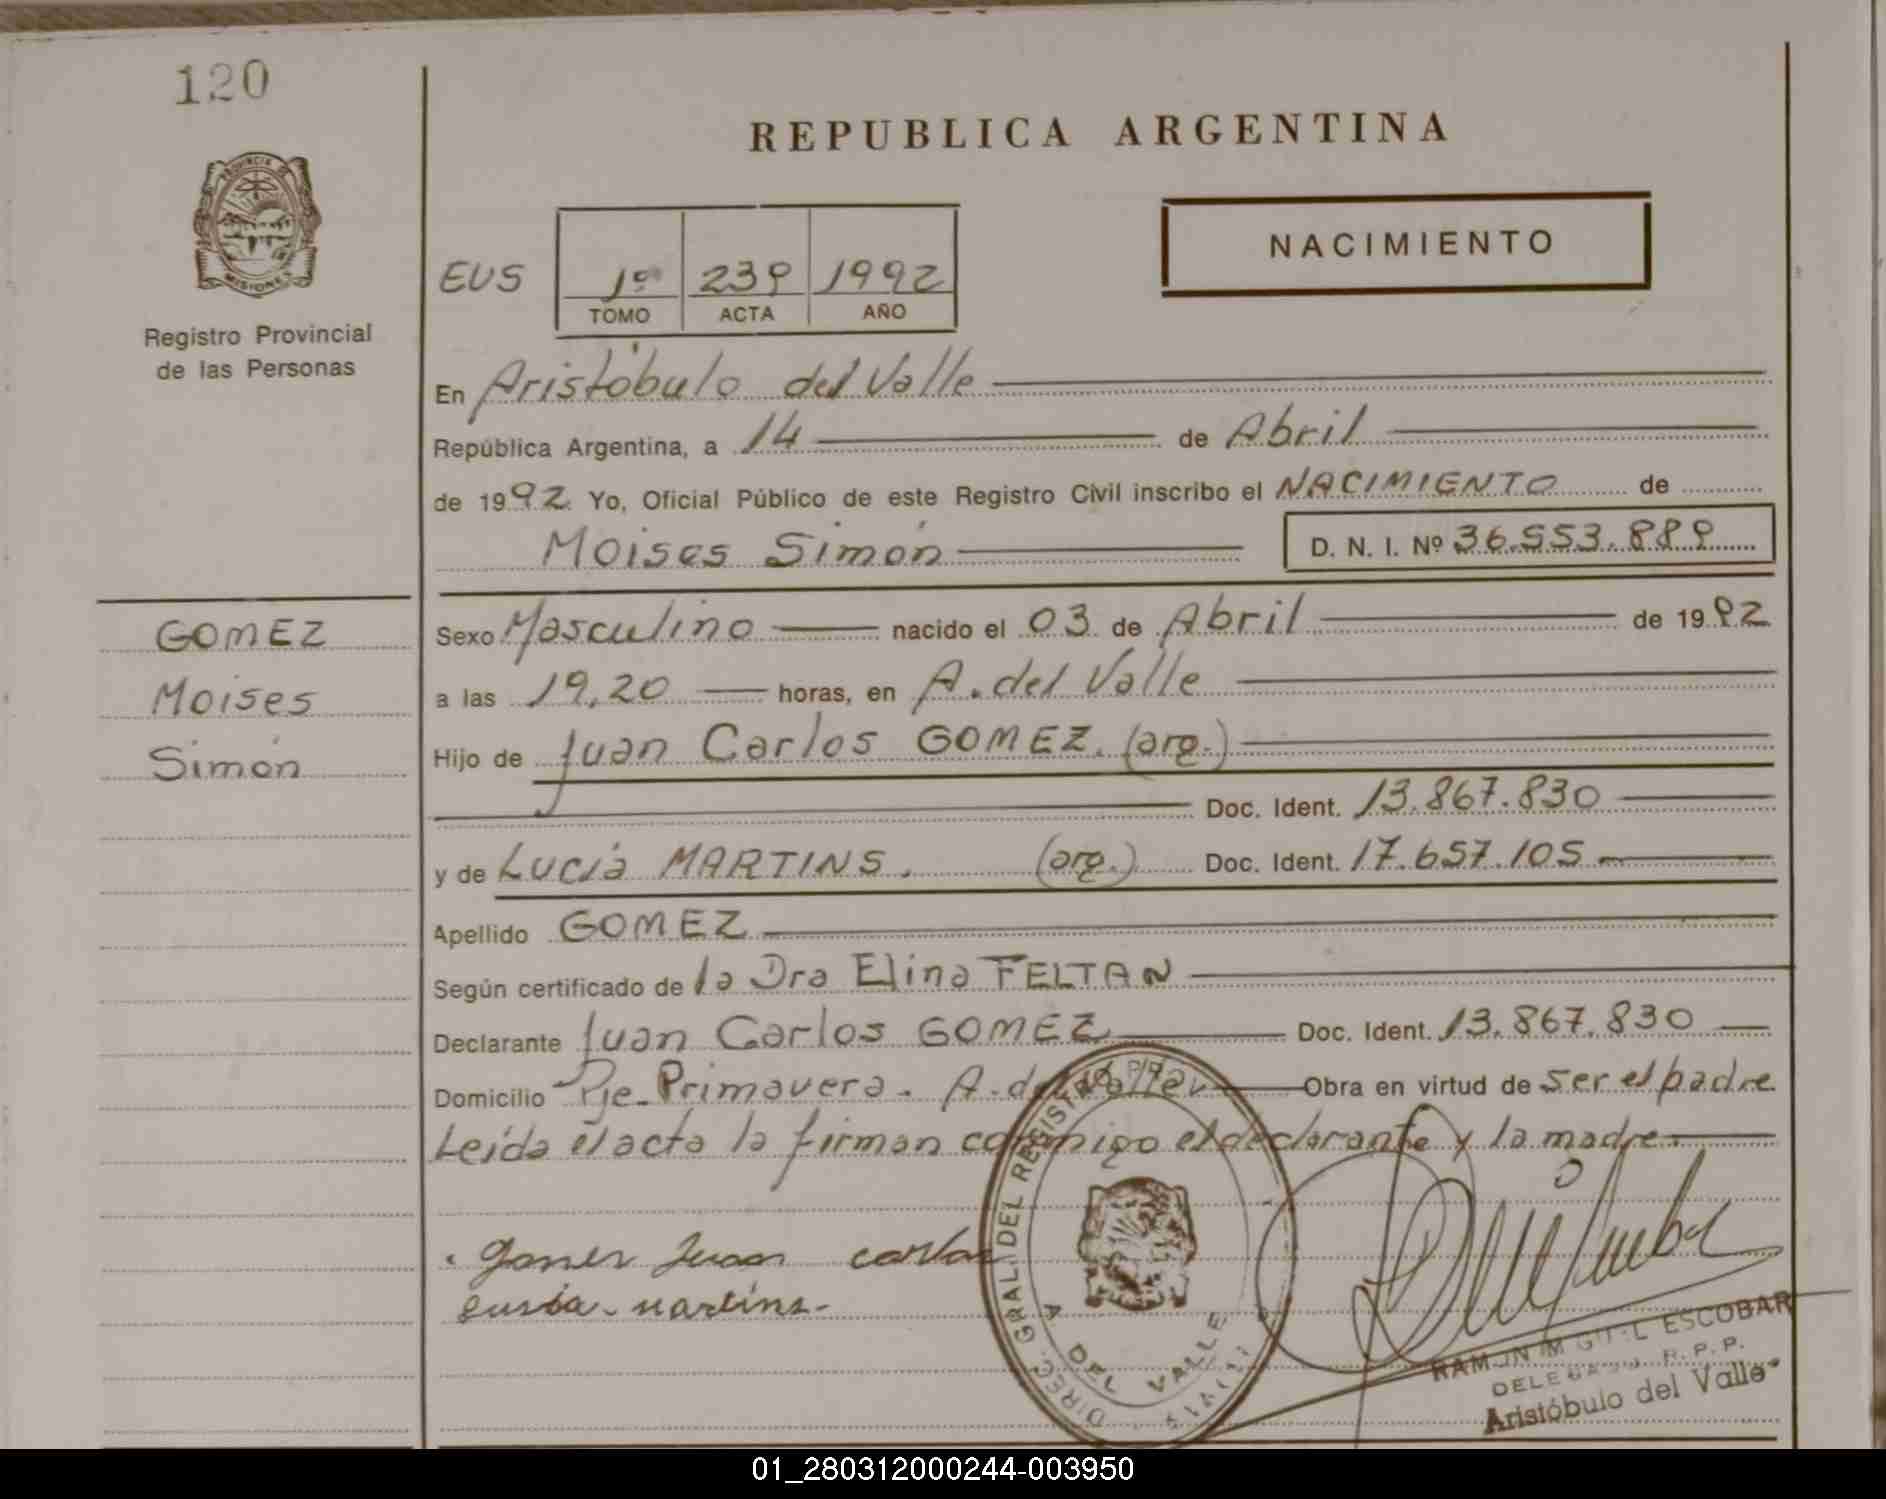 120
REPUBLICA ARGENTINA
PROVINCIA DE
MISIONES
Registro Provincial
de las Personas
NACIMIENTO
EUS
1º 239 1992
TOMO ACTA AÑO
En Aristóbulo del Valle
República Argentina, a 14 de Abril
de 1992 Yo, Oficial Público de este Registro Civil inscribo el NACIMIENTO de
Moises Simón D. N. I. Nº 36.553.889
GOMEZ
Moises
Simón
Sexo Masculino nacido el 03 de Abril de 1992
a las 19,20 horas, en A. del Valle
Hijo de Juan Carlos GOMEZ. (arg.)
Doc. Ident. 13.867.830
y de Lucía MARTINS. (arg.) Doc. Ident. 17.657.105
Apellido GOMEZ
Según certificado de la Dra Elina FELTAN
Declarante Juan Carlos GOMEZ Doc. Ident. 13.867.830
Domicilio Pje. Primavera. A. del Valle Obra en virtud de ser el padre
Leída el acta la firman conmigo el declarante y la madre.
Gomez Juan Carlos
Lusia Martins
DIREC. GRAL. DEL REGISTRO
A DEL VALLE
RAMON MIGUEL ESCOBAR
DELEGADO R.P.P.
Aristóbulo del Valle
01_280312000244-003950